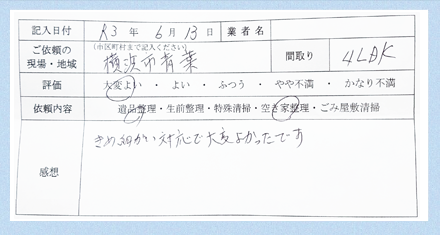 記入日付 R3 年 6 月 13 日 業者名
ご依頼の現場・地域 (市区町村まで記入ください) 横浜市青葉 間取り 4LDK
評価 大変よい ・ よい ・ ふつう ・ やや不満 ・ かなり不満
依頼内容 遺品整理・生前整理・特殊清掃・空き家整理・ごみ屋敷清掃
感想 きめ細かい対応で大変よかったです